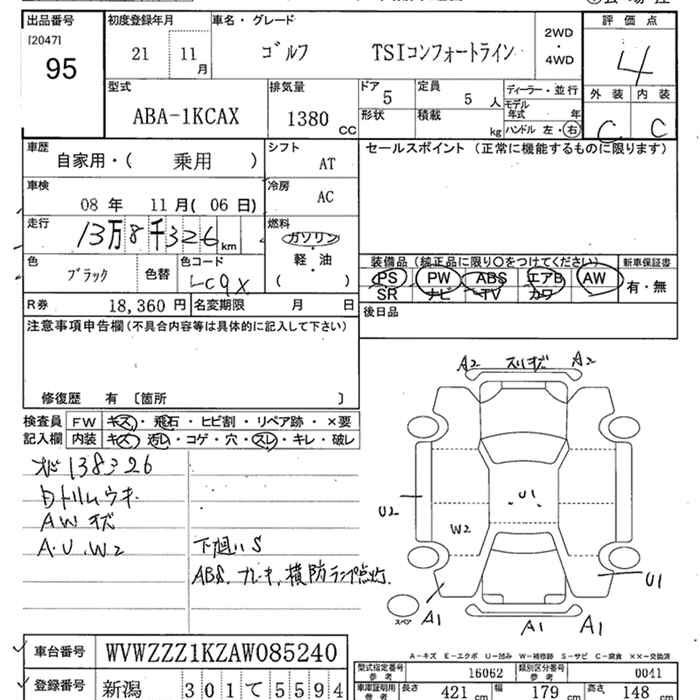 出品番号 初度登録年月 車名・グレード 評価点
[2047]
95 21 11月 ゴルフ TSIコンフォートライン 2WD・4WD 4
型式 排気量 ドア 5 定員 5人 ディーラー・並行 外装 内装
ABA-1KCAX 1380 CC 形状 積載 kg モデル年式 年 C C
ハンドル 左・右
車歴 シフト セールスポイント (正常に機能するものに限ります)
自家用・( 乗用 ) AT
車検 冷房
08年 11月(06日) AC
走行 燃料
13万8千326km ガソリン
色 色替 色コード 軽・油 装備品(純正品に限り〇をつけてください) 新車保証書
ブラック LC9X ( ) PS PW ABS エアB AW 有・無
SR ナビ TV カワ
R券 18,360円 名変期限 月 日 後日品
注意事項申告欄(不具合内容等は具体的に記入して下さい)
修復歴 有 [箇所 ]
検査員 FW キズ・飛石・ヒビ割・リペア跡・×要
記入欄 内装 キズ・汚レ・コゲ・穴・スレ・キレ・破レ
A2 スリキズ A2
138326
内トリムウキ
AWキズ
A.U.W2
下廻りS
ABS、ブレーキ、横防ランプ点灯
U2 U1 W2 U1
A1 A1 A1
スペア
A-キズ E-エクボ U-凹み W-補修跡 S-サビ C-腐食 ××-交換済
車台番号 WVWZZZ1KZAW085240
型式指定番号 参考 16062 類別区分番号 参考 0041
登録番号 新潟 301 て 5594
車庫証明用 参考 長さ 421cm 幅 179cm 高さ 148cm